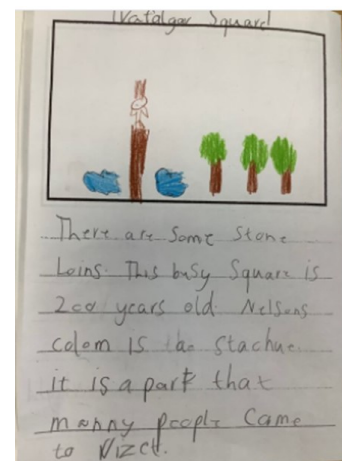 Trafalgar Square
There are some stone
Loins. This busy Square is
200 years old. Nelsons
colom is the stachue
it is a park that
manny people came
to Vizet.